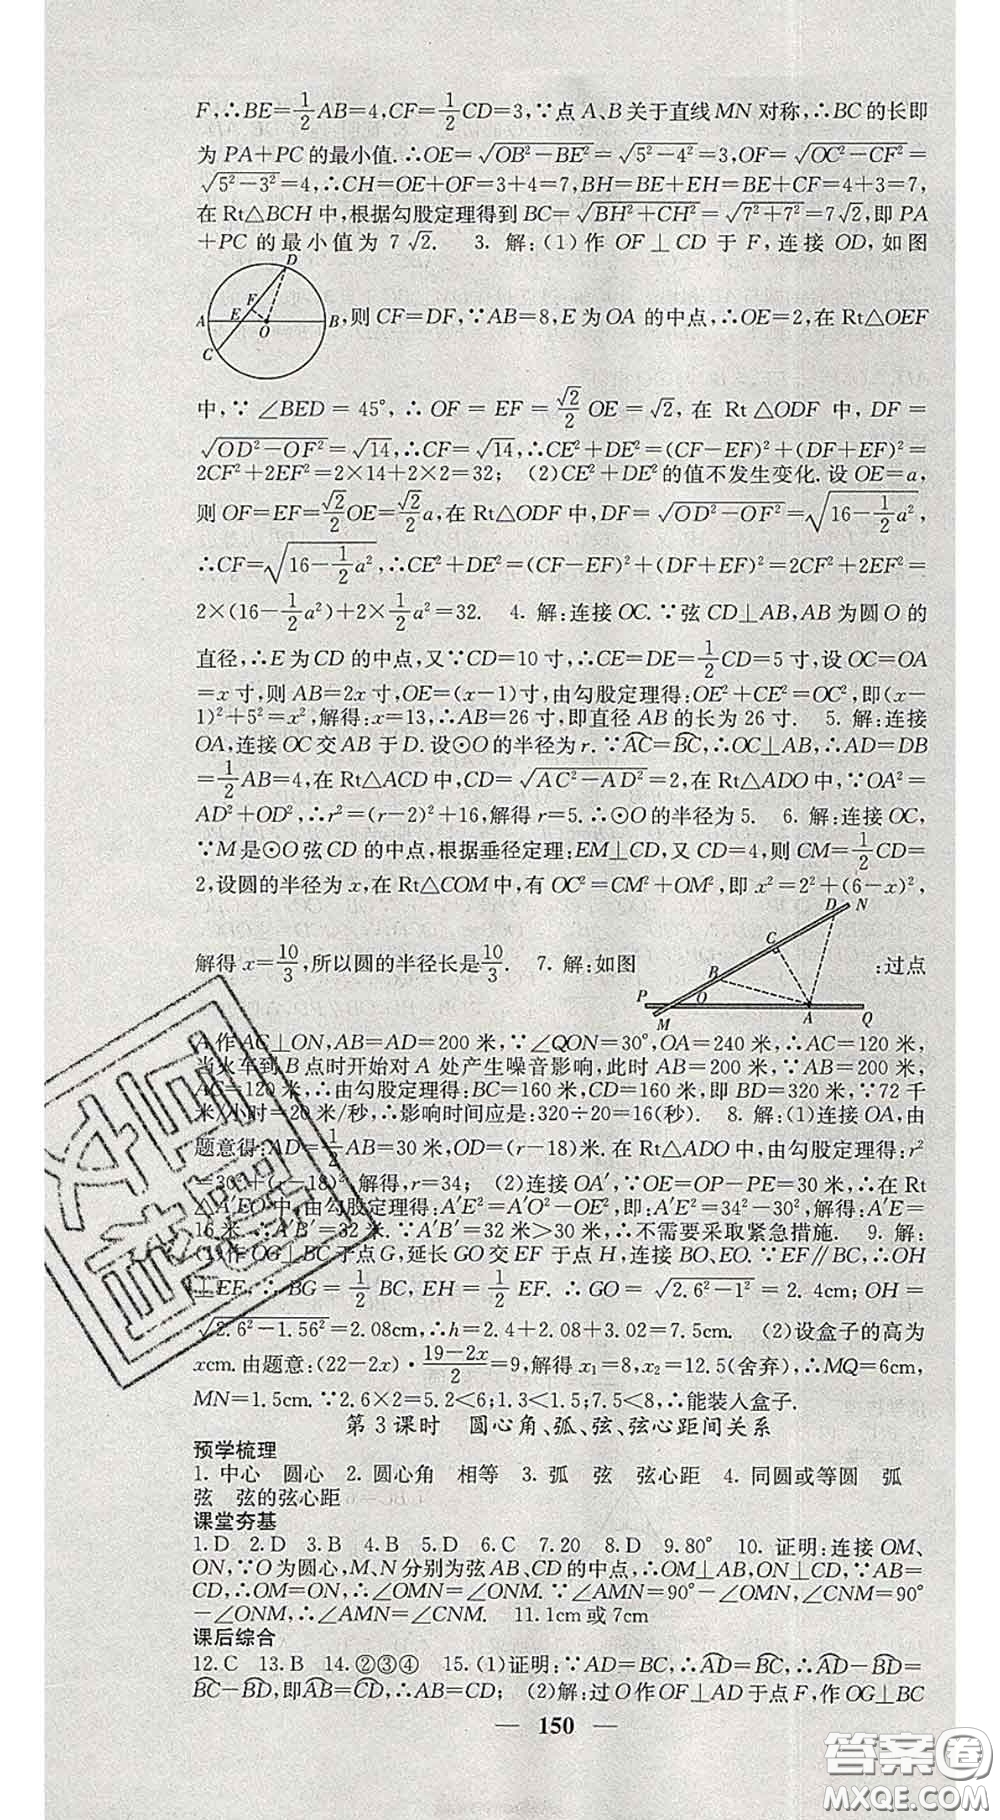 F,∴BE=1/2AB=4,CF=1/2CD=3,∵点A、B关于直线MN对称,∴BC的长即
为PA+PC的最小值.∴OE=√(OB²-BE²)=√(5²-4²)=3,OF=√(OC²-CF²)=
√(5²-3²)=4,∴CH=OE+OF=3+4=7,BH=BE+EH=BE+CF=4+3=7,
在Rt△BCH中,根据勾股定理得到BC=√(BH²+CH²)=√(7²+7²)=7√2,即PA
+PC的最小值为7√2. 3. 解:(1)作OF⊥CD于F,连接OD,如图
D
F
E
A
O
B
C
,则CF=DF,∵AB=8,E为OA的中点,∴OE=2,在Rt△OEF
中,∵∠BED=45°,∴OF=EF=√2/2OE=√2,在Rt△ODF中,DF=
√(OD²-OF²)=√14,∴CF=√14,∴CE²+DE²=(CF-EF)²+(DF+EF)²=
2CF²+2EF²=2×14+2×2=32; (2)CE²+DE²的值不发生变化.设OE=a,
则OF=EF=√2/2OE=√2/2a,在Rt△ODF中,DF=√(OD²-OF²)=√(16-1/2a²),
∴CF=√(16-1/2a²),∴CE²+DE²=(CF-EF)²+(DF+EF)²=2CF²+2EF²=
2×(16-1/2a²)+2×1/2a²=32. 4. 解:连接OC.∵弦CD⊥AB,AB为圆O的
直径,∴E为CD的中点,又∵CD=10寸,∴CE=DE=1/2CD=5寸,设OC=OA
=x寸,则AB=2x寸,OE=(x-1)寸,由勾股定理得:OE²+CE²=OC²,即(x-
1)²+5²=x²,解得:x=13,∴AB=26寸,即直径AB的长为26寸. 5. 解:连接
OA,连接OC交AB于D.设⊙O的半径为r.∵A͡C=B͡C,∴OC⊥AB,∴AD=DB
=1/2AB=4,在Rt△ACD中,CD=√(AC²-AD²)=2,在Rt△ADO中,∵OA²=
AD²+OD²,∴r²=(r-2)²+16,解得r=5.∴⊙O的半径为5. 6. 解:连接OC,
∵M是⊙O弦CD的中点,根据垂径定理:EM⊥CD,又CD=4,则CM=1/2CD=
2,设圆的半径为x,在Rt△COM中,有OC²=CM²+OM²,即x²=2²+(6-x)²,
D N
C
B
P O
M A Q
解得x=10/3,所以圆的半径长是10/3. 7. 解:如图 :过点
A作AC⊥ON,AB=AD=200米,∵∠QON=30°,OA=240米,∴AC=120米,
当火车到B点时开始对A处产生噪音影响,此时AB=200米,∵AB=200米,
AC=120米,∴由勾股定理得:BC=160米,CD=160米,即BD=320米,∵72千
米/小时=20米/秒,∴影响时间应是:320÷20=16(秒). 8. 解:(1)连接OA,由
题意得:AD=1/2AB=30米,OD=(r-18)米.在Rt△ADO中,由勾股定理得:r²
=30²+(r-18)²,解得,r=34; (2)连接OA′,∵OE=OP-PE=30米,∴在Rt
△A′EO中,由勾股定理得:A′E²=A′O²-OE²,即:A′E²=34²-30²,解得:A′E=
16米.∴A′B′=32米.∵A′B′=32米>30米,∴不需要采取紧急措施. 9. 解:
(1)作OG⊥BC于点G,延长GO交EF于点H,连接BO、EO.∵EF∥BC,∴OH
⊥EF,∴BG=1/2BC,EH=1/2EF.∴GO=√(2.6²-1²)=2.4cm;OH=
√(2.6²-1.56²)=2.08cm,∴h=2.4+2.08+3.02=7.5cm. (2)设盒子的高为
xcm.由题意:(22-2x)·(19-2x)/2=9,解得x₁=8,x₂=12.5(舍弃),∴MQ=6cm,
MN=1.5cm.∵2.6×2=5.2<6;1.3<1.5;7.5<8,∴能装入盒子.
第3课时 圆心角、弧、弦、弦心距间关系
预学梳理
1. 中心 圆心 2. 圆心角 相等 3. 弧 弦 弦心距 4. 同圆或等圆 弧
弦 弦的弦心距
课堂夯基
1.D 2.D 3.B 4.B 5.D 6.C 7.20 8.D 9.80° 10. 证明:连接OM、
ON,∵O为圆心,M、N分别为弦AB、CD的中点,∴OM⊥AB,ON⊥CD,∵AB=
CD,∴OM=ON,∴∠OMN=∠ONM.∵∠AMN=90°-∠OMN,∠CNM=90°
-∠ONM,∴∠AMN=∠CNM. 11.1cm或7cm
课后综合
12.C 13.B 14.②③④ 15.(1)证明:∵AD=BC,∴A͡D=B͡C,∴A͡D-B͡D=
B͡C-B͡D,即A͡B=C͡D,∴AB=CD; (2)解:过O作OF⊥AD于点F,作OG⊥BC
— 150 —
答案圈
MXQE.COM